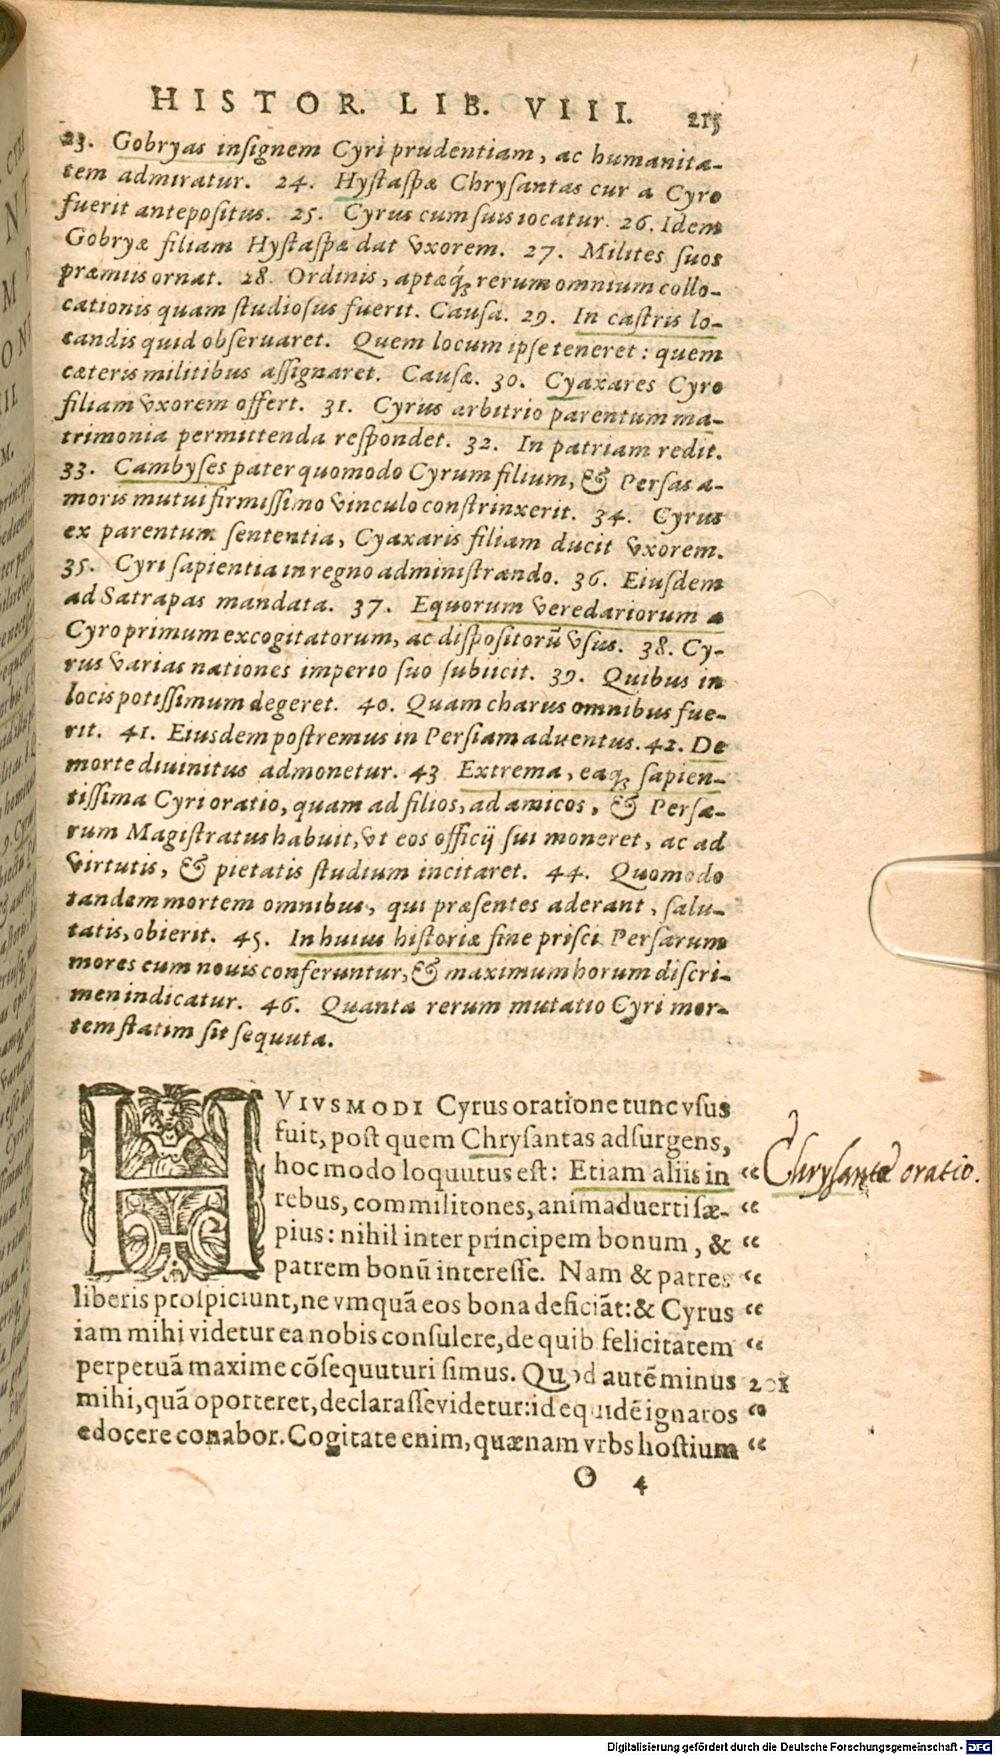 HISTOR. LIB. VIII. 215
23. Gobryas insignem Cyri prudentiam, ac humanita-
tem admiratur. 24. Hystaspæ Chrysantas cur a Cyro
fuerit antepositus. 25. Cyrus cum suis iocatur. 26. Idem
Gobryæ filiam Hystaspæ dat vxorem. 27. Milites suos
præmiis ornat. 28. Ordinis, aptæq́; rerum omnium collo-
cationis quam studiosus fuerit. Causa. 29. In castris lo-
candis quid obseruaret. Quem locum ipse teneret: quem
cæteris militibus assignaret. Causæ. 30. Cyaxares Cyro
filiam vxorem offert. 31. Cyrus arbitrio parentum ma-
trimonia permittenda respondet. 32. In patriam redit.
33. Cambyses pater quomodo Cyrum filium, & Persas a-
moris mutui firmissimo vinculo constrinxerit. 34. Cyrus
ex parentum sententia, Cyaxaris filiam ducit vxorem.
35. Cyri sapientia in regno administrando. 36. Eiusdem
ad Satrapas mandata. 37. Equorum veredariorum a
Cyro primum excogitatorum, ac dispositorũ vsus. 38. Cy-
rus varias nationes imperio suo subiicit. 39. Quibus in
locis potissimum degeret. 40. Quam charus omnibus fue-
rit. 41. Eiusdem postremus in Persiam aduentus. 42. De
morte diuinitus admonetur. 43 Extrema, eaq; sapien-
tissima Cyri oratio, quam ad filios, ad amicos, & Persa-
rum Magistratus habuit, vt eos officij sui moneret, ac ad
virtutis, & pietatis studium incitaret. 44. Quomodo
tandem mortem omnibus, qui præsentes aderant, salu-
tatis, obierit. 45. In huius historiæ fine prisci Persarum
mores cum nouis conferuntur, & maximum horum discri-
men indicatur. 46. Quanta rerum mutatio Cyri mor-
tem statim sit sequuta.
HVIVSMODI Cyrus oratione tunc vsus
fuit, post quem Chrysantas adsurgens,
hoc modo loquutus est: Etiam aliis in “ Chrysantæ oratio.
rebus, commilitones, animaduerti sæ- “
pius: nihil inter principem bonum, & “
patrem bonũ interesse. Nam & patres “
liberis prospiciunt, ne vmquã eos bona deficiãt: & Cyrus “
iam mihi videtur ea nobis consulere, de quib. felicitatem “
perpetuã maxime cõsequuturi simus. Quod autẽ minus 201
mihi, quã oporteret, declarasse videtur: id equidẽ ignaros “
edocere conabor. Cogitate enim, quænam vrbs hostium “
O 4
Digitalisierung gefördert durch die Deutsche Forschungsgemeinschaft - DFG